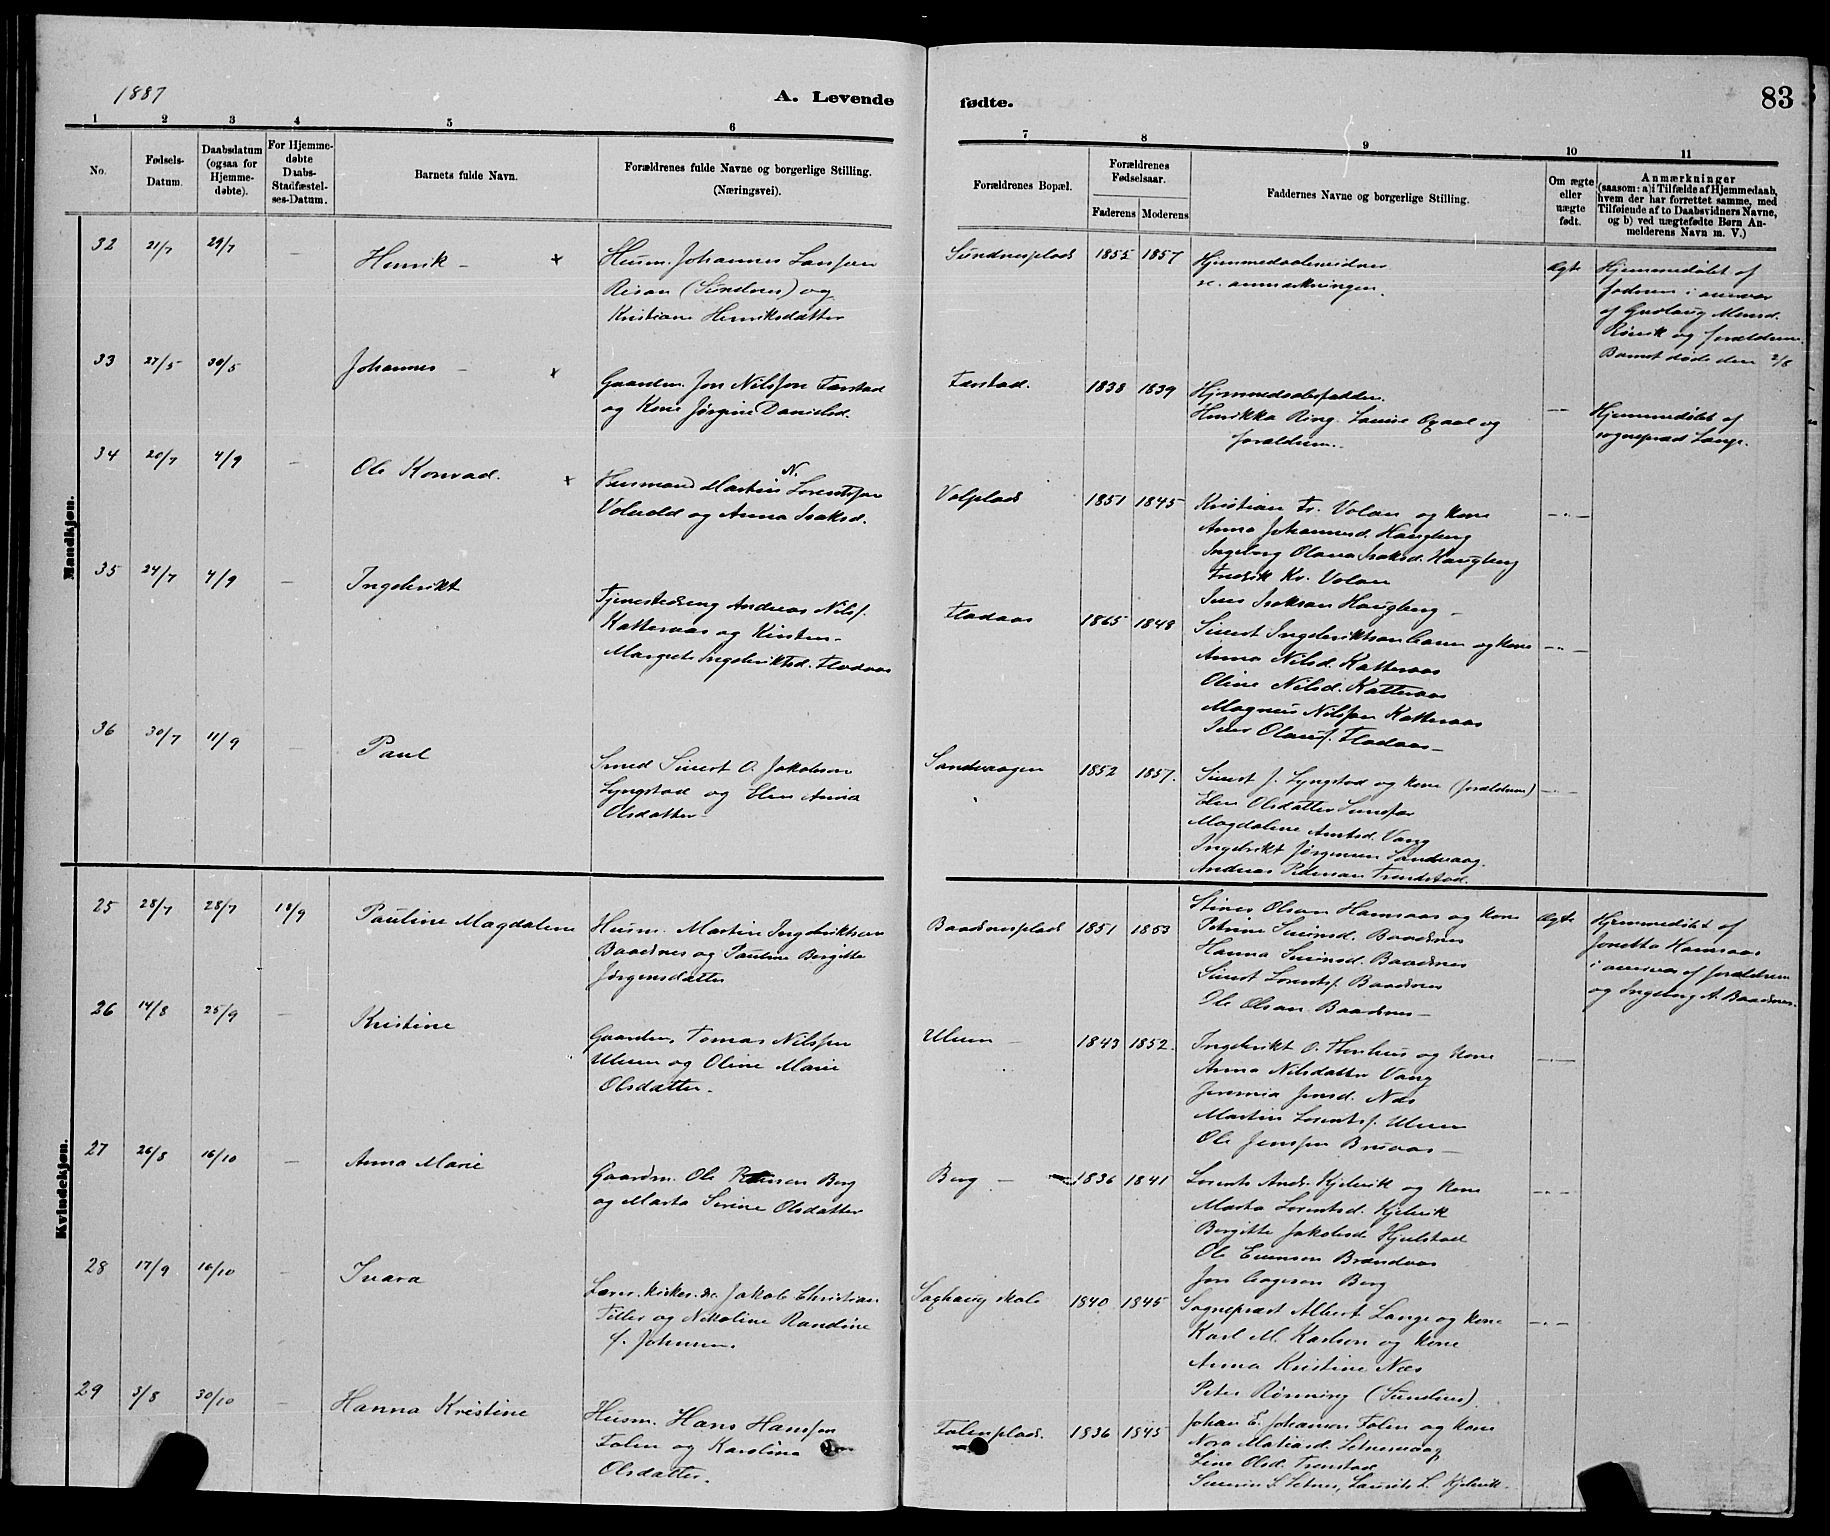 1887
A. Levende
fødte.
83
1 2 3 4 5 6 7 8 9 10 11
No.
Fødsels-
Datum.
Daabsdatum
(ogsaa for
Hjemme-
døbte).
For Hjemme-
døbte
Daabs-
Stadfæstel-
ses-Datum.
Barnets fulde Navn.
Forældrenes fulde Navne og borgerlige Stilling.
(Næringsvei).
Forældrenes Bopæl.
Forældrenes
Fødselsaar.
Faderens Moderens
Faddernes Navne og borgerlige Stilling.
Om ægte
eller
uægte
født.
Anmærkninger
(saasom: a) i Tilfælde af Hjemmedaab,
hvem der har forrettet samme, med
Tilføiende af to Daabsvidners Navne,
og b) ved uægtefødte Børn An-
melderens Navn m. V.)
Mandkjøn.
32 21/7 29/7 —
Henrik — x
Husm. Johannes
(Sundnes) og
Kristiane Henriksdatter
Sundnesplads 1855 1857
Hjemmedaabsvidner
se anmærkningen.
Ægte
Hjemmedøbt af
faderen i nærvær
af
og forældrene
Barnet døde den 2/8
33 27/5 30/5
Johannes — x
Gaardm. Jon Nilssen
og Kone Jørgine Danielsd.
1838 1839
Hjemmedaabsfaddere
Henrikka Ring. og
forældrene.
— Hjemmedøbt af
sogneprest Lange.
34 20/7 4/9 —
Ole Konrad. x
Husmand Martin N. Lorentssen
og Anna Isaksd.
Volplads 1851 1845
Kristian Fr. Volan og kone
Anna Johannesd. Haugberg
Ingeborg Olava Isaksd. Haugberg
Fredrik Kr. Volan
Iver Isaksen Haugberg —
35 24/7 4/9 —
Ingebrikt
Tjenestedreng Andreas Nilss.
Katteraas og Kirsten
Margrete Ingebriktsd. Fladaas
Fladaas 1865 1848
Sivert Ingebriktsen og Kone
Anna Nilsd. Katteraas
Oline Nilsd. Katteraas
Magnus Nilssen Katteraas
Iver Olauss. Fladaas —
36 30/7 11/9 —
Paul
Smed Sivert O. Jakobsen
Lyngstad og Elen Anna
Olsdatter —
Sandvaagen 1852 1857.
Sivert J. Lyngstad og kone (forældrene)
Elen Olsdatter
Magdalene Arntsd. Vang
Ingebrikt Jørgensen Sandvaag.
Andreas Petersen
Kvindekjøn.
25 28/7 28/7 18/9
Pauline Magdalene
Husm. Martin Ingebriktsen
Baadsnes og Pauline Bergitte
Jørgensdatter
Baadsnesplads 1851 1853
Olsen Hamsaas og kone
Petrine Baadsnes
Hanna Baadsnes
Sivert Lorents. Baadsnes
Ole Olsen Baadsnes —
Ægte
Hjemmedøbt af
Jonetta Hamsaas
i nærvær af forældrene
og Ingeborg A. Baadsnes.
26 14/8 25/9 —
Kristine
Gaardm. Tomas Nilssen
Ulven og Oline Marie
Olsdatter.
Ulven — 1843 1852.
Ingebrikt O. og Kone
Anna Nilsdatter Vang
Jensd. Næs
Martin Lorents. Ulven
Ole Jenssen Bruaas —
27 26/8 16/10 —
Anna Marie
Gaardm. Ole Petersen Berg
og Marta Sirine Olsdatter
Berg — 1836 1841
Lorents Andr. Kjelvik og kone
Marta Lorentsd. Kjelvik
Bergitte Jakobsd. Hjelstad
Ole Evensen Brandaas
Jon Aagesen Berg
28 17/9 16/10 —
Ivara
Lærer, kirkes. &c Jakob Christian
Tiller og Nikoline Randine
f. Johnsen.
Saghaug skole 1840 1845
Sogneprest Albert Lange og kone
Karl M. Karlsen og kone
Anna Kristine Næs
Peter Rønning (Sundnes).
29 3/8 30/10 —
Hanna Kristine
Husm. Hans Hanssen
Folen og Karolina
Olsdatter.
Folenplads. 1836 1845
Johan E. Johansen Folen og kone
Nora Matiasd.
Line Olsd.
Laurits L. Kjelvik.